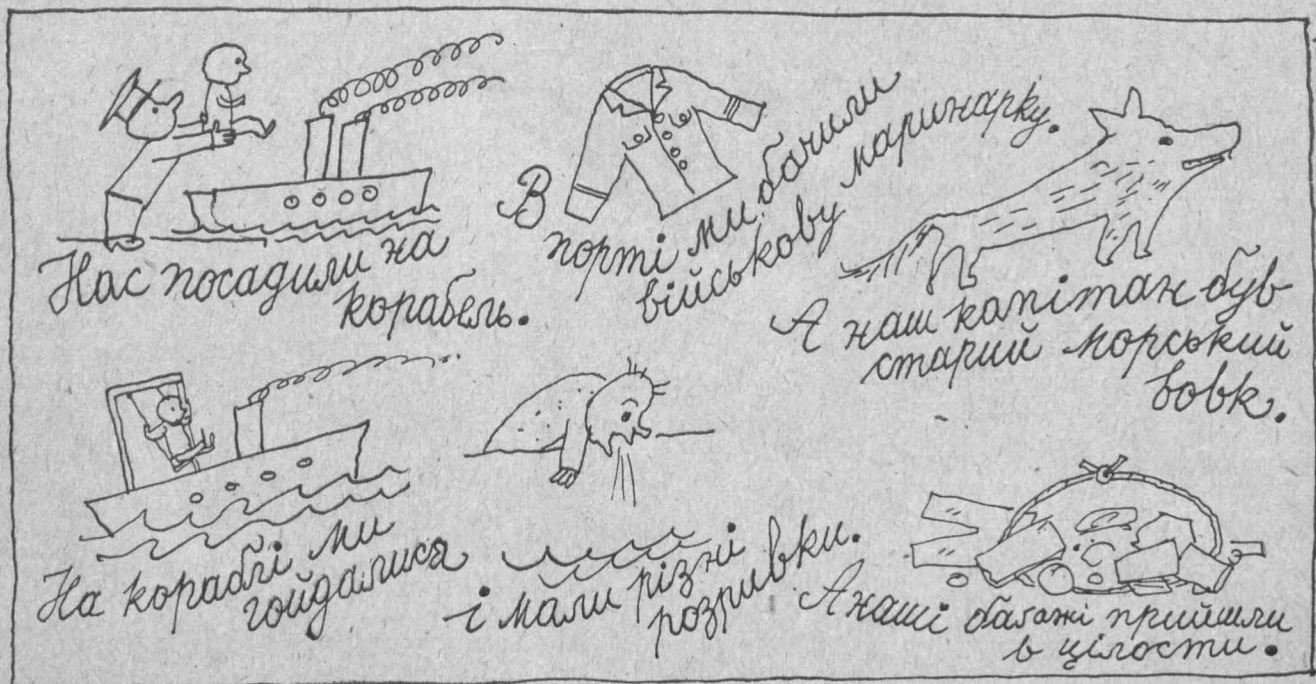 Нас посадили на
корабель.
В
порті ми бачили
військову маринарку.
А наш капітан був
старий морський
вовк.
На кораблі ми
гойдалися
і мали різні
розривки.
А наші баґажі прийшли
в цілости.